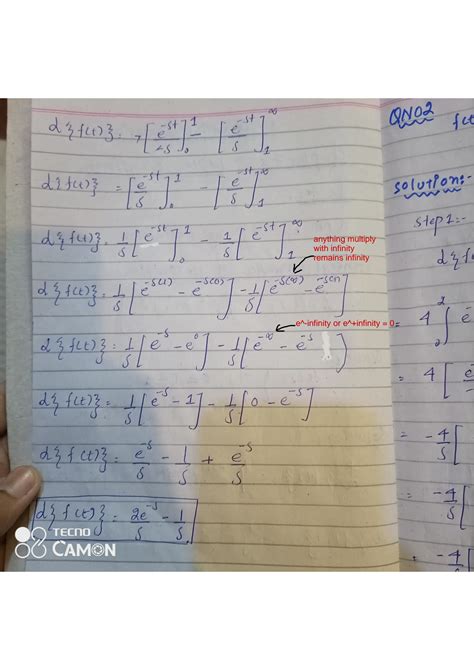 L{f(t)} = [e^-st / -s]₀¹ - [e^-st / s]₁^∞
L{f(t)} = [e^-st / s]₀¹ - [e^-st / s]₁^∞
L{f(t)} = 1/s [e^-st]₀¹ - 1/s [e^-st]₁^∞
anything multiply
with infinity
remains infinity
L{f(t)} = 1/s [e^-s(1) - e^-s(0)] - 1/s [e^-s(∞) - e^-s(1)]
e^-infinity or e^+infinity = 0
L{f(t)} = 1/s [e^-s - e^0] - 1/s [e^-∞ - e^-s]
L{f(t)} = 1/s [e^-s - 1] - 1/s [0 - e^-s]
L{f(t)} = e^-s/s - 1/s + e^-s/s
L{f(t)} = 2e^-s/s - 1/s
TECNO
CAMON
QNO2
f(t
solution:-
step1:-
L{f
= 4 ∫₂
= 4 [e
= -4/s [
= -4/s [
= -4/s [